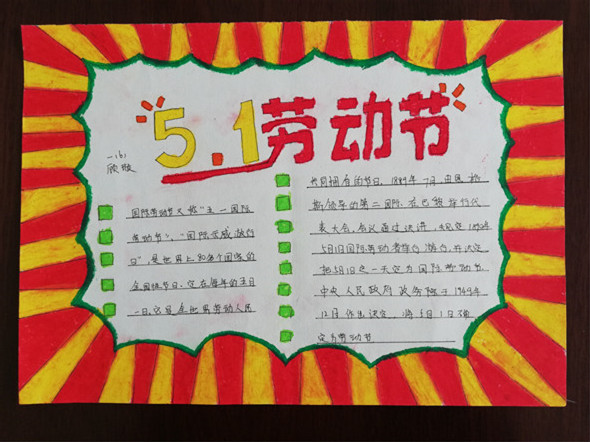 5.1劳动节
一(6)
顾敏
国际劳动节又称"五一国际
劳动节"、"国际示威游行
日",是世界上80多个国家的
全国性节日。定在每年的五月
一日。它是全世界劳动人民
共同拥有的节日。1889年7月,由恩格
斯领导的第二国际,在巴黎举行代
表大会,会议通过决议,规定1890年
5月1日国际劳动者举行游行,并决定
把5月1日这一天定为国际劳动节
中央人民政府政务院于1949年
12月作出决定,将5月1日确
定为劳动节